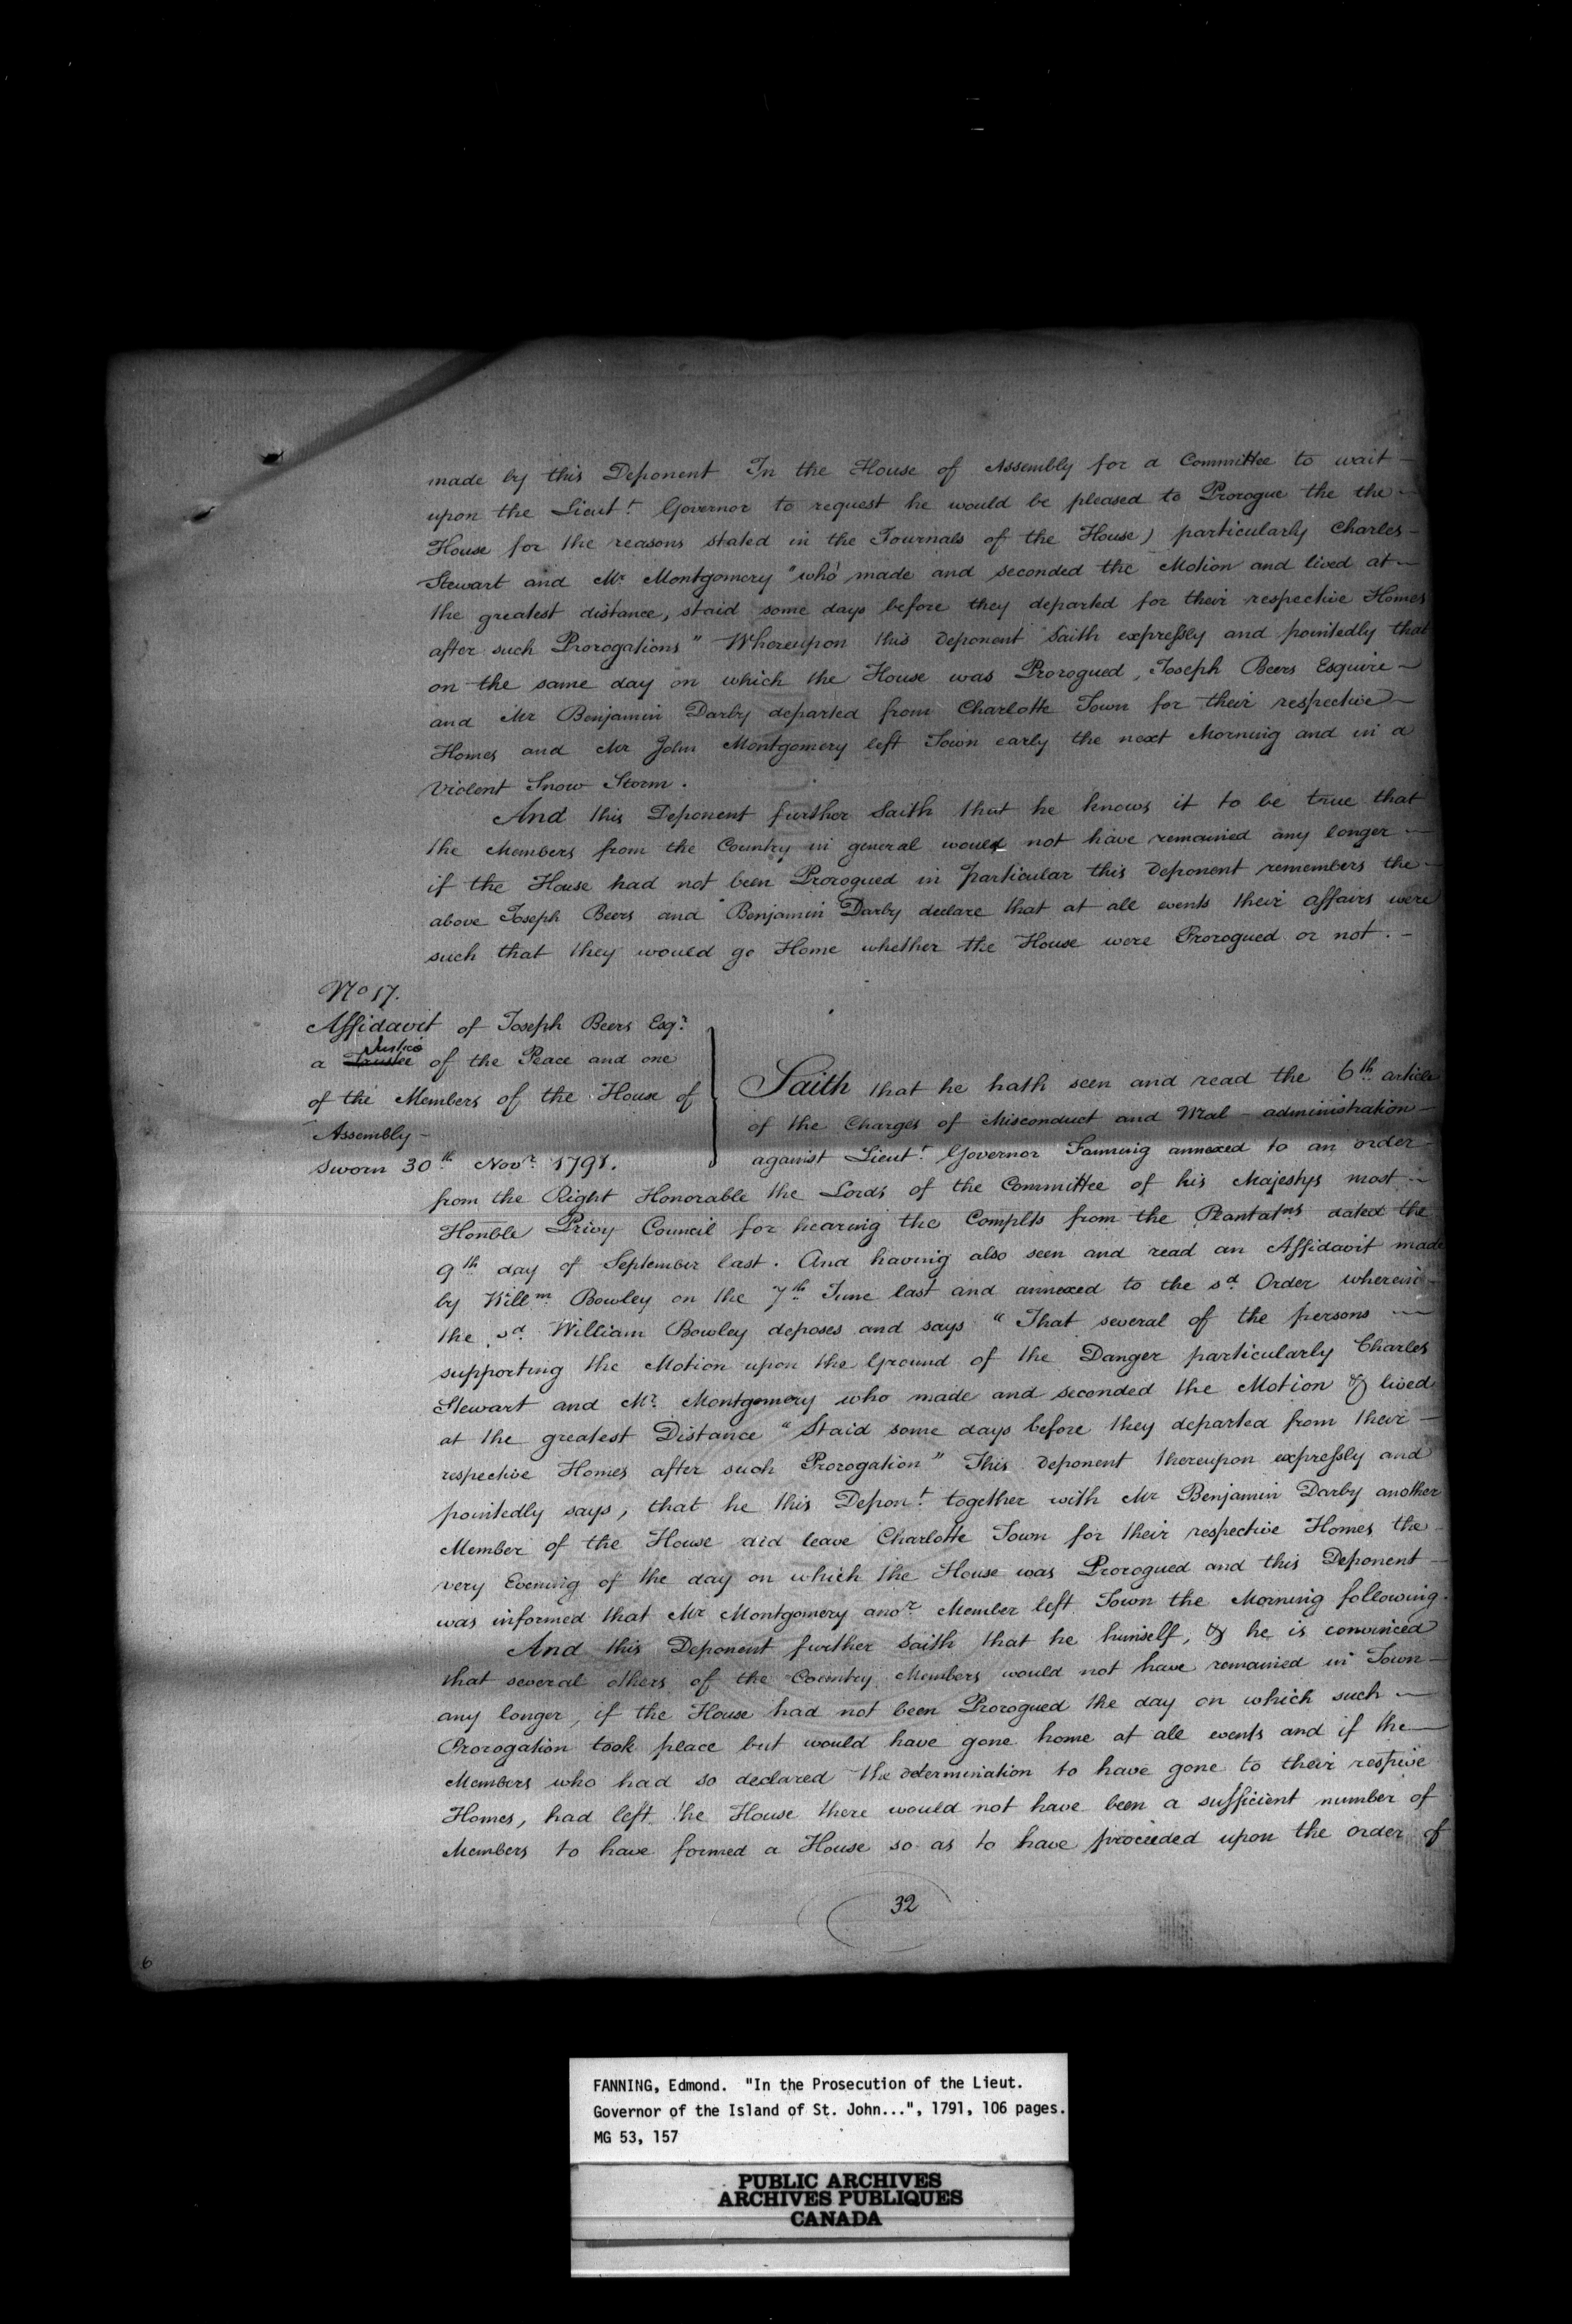 made by this Deponent In the House of Assembly for a Committee to wait —
upon the Lieut.t Governor to request he would be pleased to Prorogue the the —
House for the reasons stated in the Journals of the House) particularly Charles —
Stewart and Mr. Montgomery "who made and seconded the Motion and lived at —
the greatest distance, staid some days before they departed for their respective Homes
after such Prorogations" Whereupon this Deponent Saith expressly and pointedly that
on the same day on which the House was Prorogued, Joseph Beers Esquire —
and Mr Benjamin Darby departed from Charlotte Town for their respective —
Homes and Mr John Montgomery left Town early the next Morning and in a
Violent Snow Storm.
And this Deponent further Saith that he knows it to be true that
the Members from the Country in general would not have remained any longer —
if the House had not been Prorogued in particular this Deponent remembers the —
above Joseph Beers and Benjamin Darby declare that at all events their affairs were
such that they would go Home whether the House were Prorogued or not. —
No 17.
Affidavit of Joseph Beers Esqr.
Justice
a Trustee of the Peace and one
of the Members of the House of
Assembly —
Sworn 30th Novr. 1791.
Saith that he hath seen and read the 6th article
of the Charges of Misconduct and Mal-administration —
against Lieut.t Governor Fanning annexed to an order —
from the Right Honorable the Lords of the Committee of his Majestys most —
Honble Privy Council for hearing the Complts from the Plantatns dated the
9th day of September last. And having also seen and read an Affidavit made
by Willm. Bowley on the 7th June last and annexed to the sd. Order wherein —
the sd. William Bowley deposes and says "That several of the persons —
supporting the Motion upon the Ground of the Danger particularly Charles
Stewart and Mr. Montgomery who made and seconded the Motion & lived
at the greatest Distance "Staid some days before they departed from their —
respective Homes after such Prorogation" This Deponent thereupon expressly and
pointedly says, that he this Depont. together with Mr Benjamin Darby another
Member of the House did leave Charlotte Town for their respective Homes the —
very Evening of the day on which the House was Prorogued and this Deponent —
was informed that Mr Montgomery anor. Member left Town the Morning following.
And this Deponent further Saith that he himself, & he is convinced
that several others of the Country Members would not have remained in Town —
any longer, if the House had not been Prorogued the day on which such —
Prorogation took place but would have gone home at all events and if the —
Members who had so declared the determination to have gone to their resptive
Homes, had left the House there would not have been a sufficient number of
Members to have formed a House so as to have proceeded upon the order of
32
6
FANNING, Edmond. "In the Prosecution of the Lieut.
Governor of the Island of St. John...", 1791, 106 pages.
MG 53, 157
PUBLIC ARCHIVES
ARCHIVES PUBLIQUES
CANADA